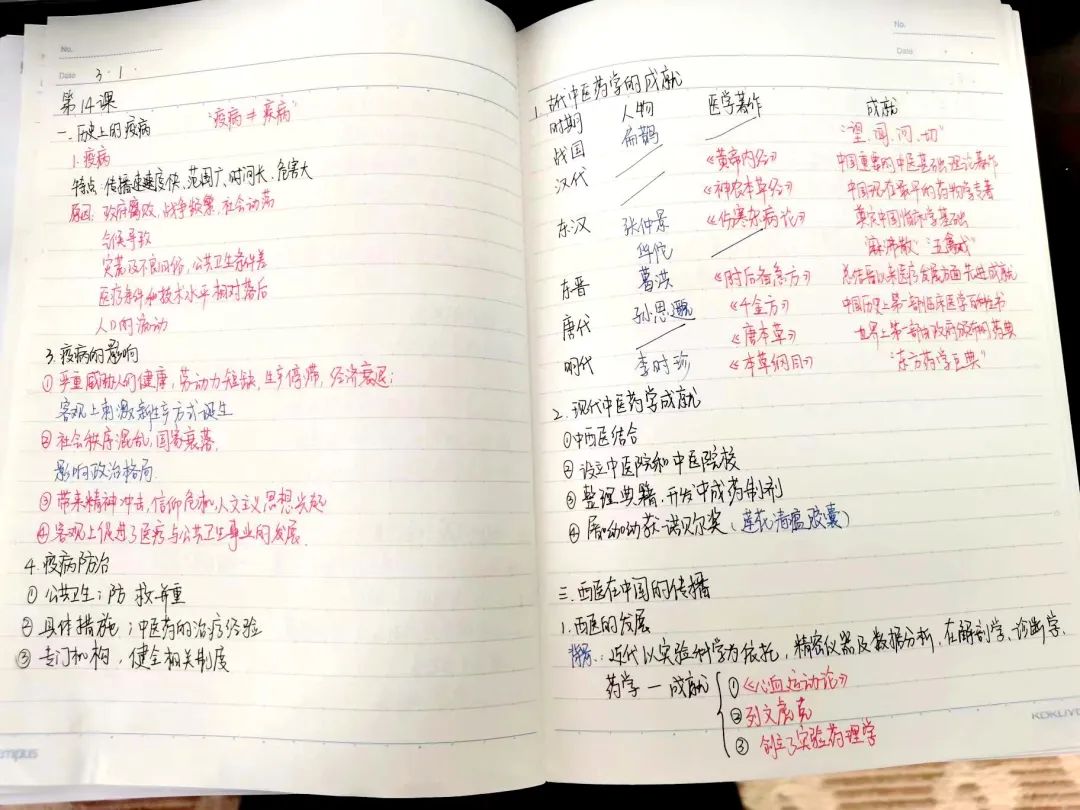 No.
Date 3·1·
第14课
一.历史上的疫病 "疫病≠疾病"
1.疫病
特点:传播速度快、范围广、时间长、危害大
原因:政府腐败,战争频繁,社会动荡
气候导致
灾荒及不良风俗,公共卫生条件差
医疗条件和技术水平相对落后
人口的流动
3.疫病的影响
①严重威胁人们健康,劳动力短缺,生产停滞,经济衰退;
客观上刺激新生产方式诞生
②社会秩序混乱,国势衰落.
影响政治格局.
③带来精神冲击,信仰危机,人文主义思想兴起
④客观上促进了医疗与公共卫生事业的发展.
4.疫病防治
①公共卫生;防 救并重
②具体措施;中医药的治疗经验
③专门机构,健全相关制度
mpus
No.
Date
1.古代中医药学的成就
时期 人物 医学著作 成就
战国 扁鹊 "望、闻、问、切"
汉代 《黄帝内经》 中国重要的中医基础理论著作
《神农本草经》 中国现存最早的药物学专著
东汉 张仲景 《伤寒杂病论》 奠定中国临床学基础
华佗 "麻沸散" "五禽戏"
东晋 葛洪 《肘后备急方》 总结晋以来医疗发展方面先进成就
唐代 孙思邈 《千金方》 中国历史上第一部临床医学百科全书
《唐本草》 世界上第一部由政府颁布的药典
明代 李时珍 《本草纲目》 "东方药学巨典"
2.现代中医药学成就
①中西医结合
②设立中医院和中医院校
③整理典籍.开发中成药制剂
④屠呦呦获诺贝尔奖(莲花清瘟胶囊)
三.西医在中国的传播
1.西医的发展
背景:近代以实验科学为依托,精密仪器及数据分析,在解剖学、诊断学、
药学—成就 ①《心血运动论》
②列文虎克
③ 创立了实验药理学
KOKUYO